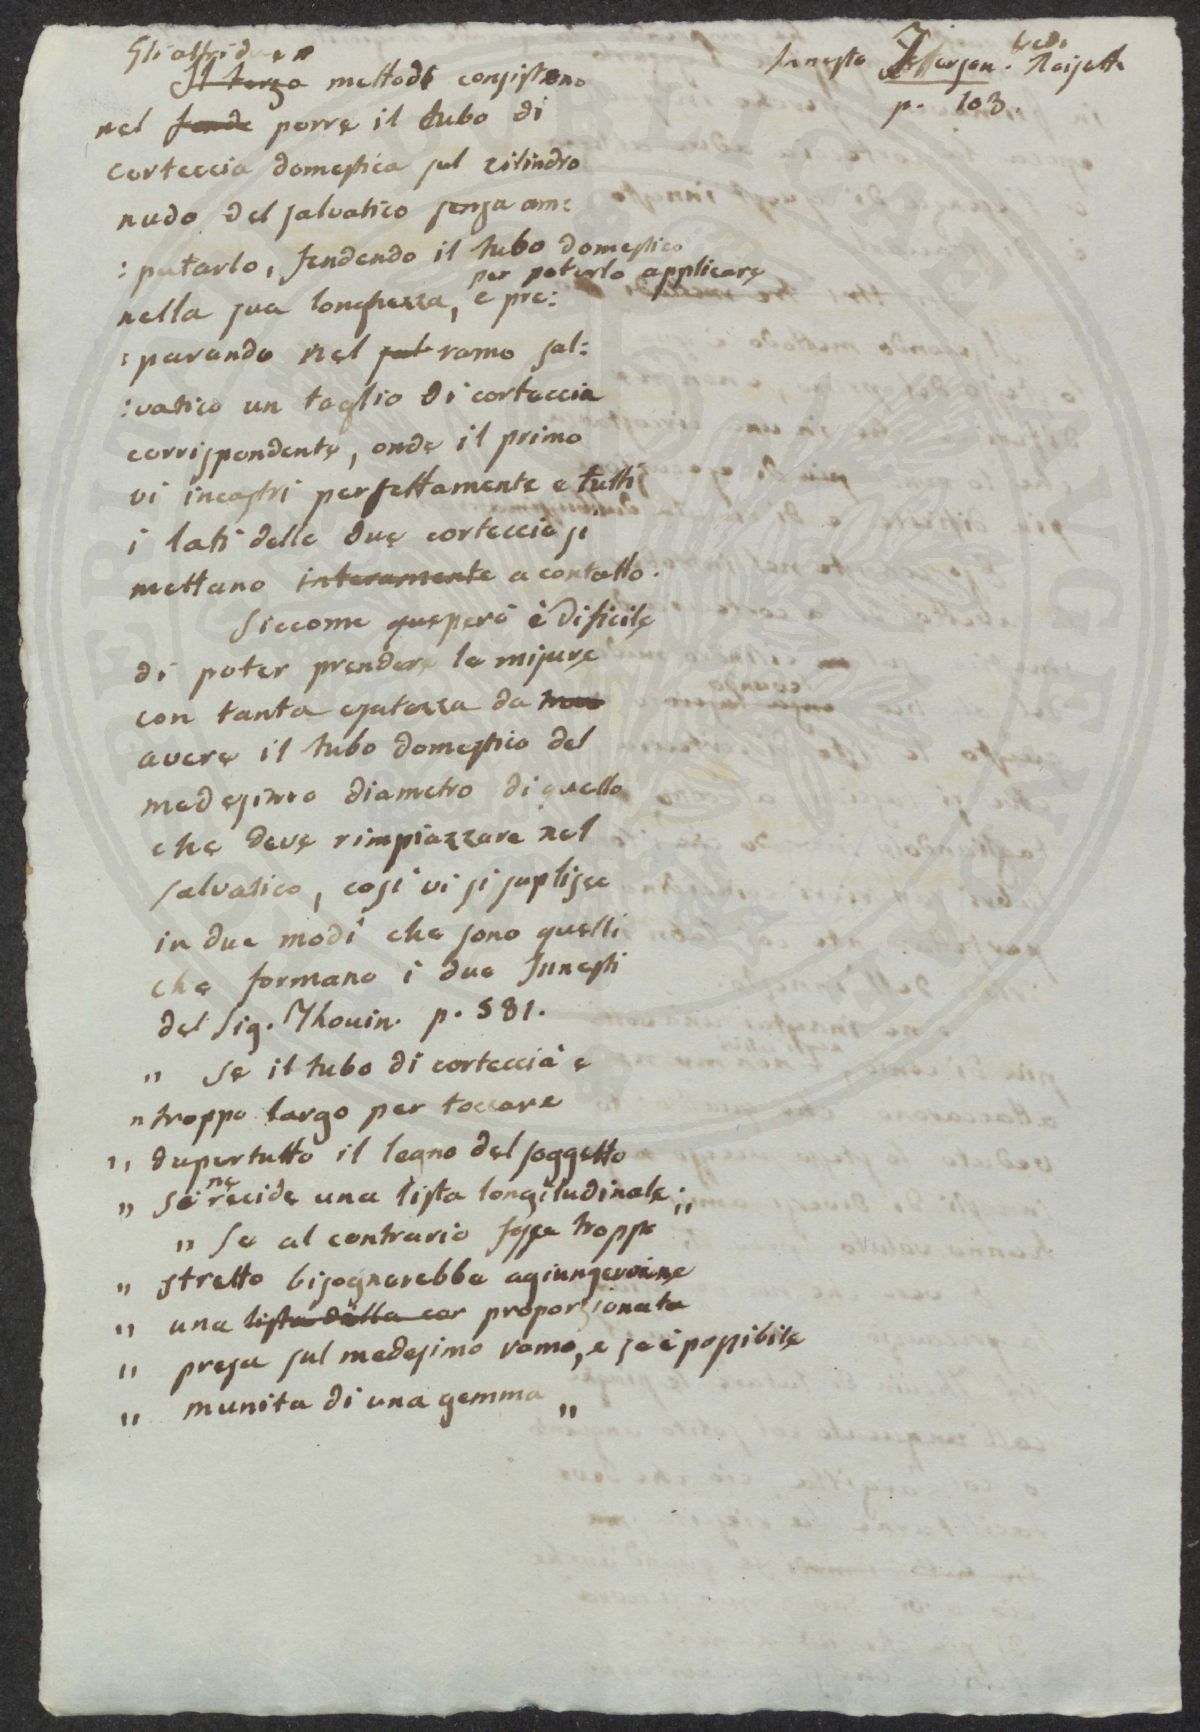 Gli altri due
Il terzo mettodi consistono
nel fende porre il tubo di
corteccia domestica sul cilindro
nudo del salvatico senza am:
:putarlo, fendendo il tubo domestico
per poterlo applicare
nella sua longhezza, e pre:
:parando nel sal ramo sal:
:vatico un taglio di corteccia
corrispondente, onde il primo
vi incastri perfettamente e tutti
i lati delle due corteccie si
mettano interamente a contatto.
Siccome però è dificile
di poter prendere le misure
con tanta esatezza da
avere il tubo domestico del
medesimo diametro di quello
che deve rimpiazzare nel
salvatico, così vi si suplisce
in due modi che sono quelli
che formano i due Innesti
del Sig. Thouin. p. 581.
" Se il tubo di corteccia è
" troppo largo per toccare
" dapertutto il legno del soggetto
" se ne recide una lista longitudinale; "
" Se al contrario fosse troppo
" stretto bisognerebbe agiungervene
" una lista della cor proporzionata
" presa sul medesimo ramo, e se è possibile
" munita di una gemma "
Innesto Jefferson. vedi Noisette
p. 103.